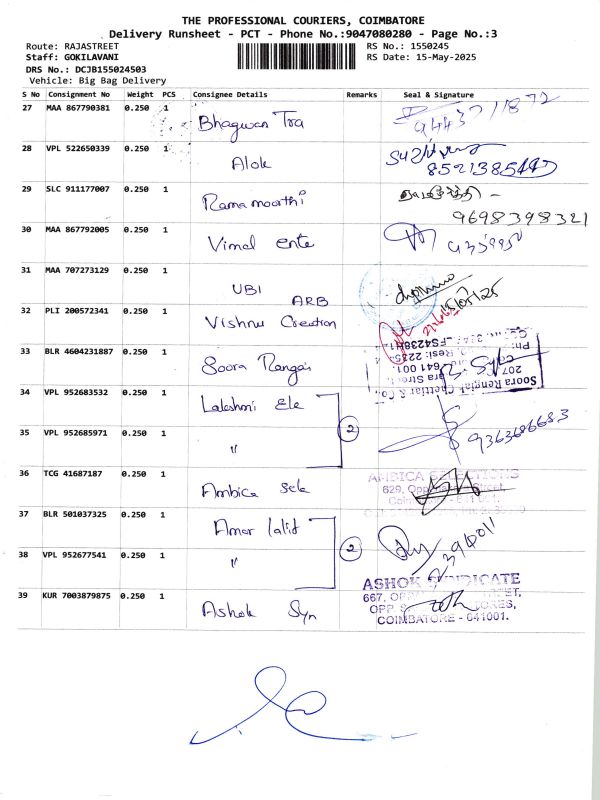 THE PROFESSIONAL COURIERS, COIMBATORE
Delivery Runsheet - PCT - Phone No.:9047080280 - Page No.:3
Route: RAJASTREET RS No.: 1550245
Staff: GOKILAVANI RS Date: 15-May-2025
DRS No.: DCJB155024503
Vehicle: Big Bag Delivery
S No Consignment No Weight PCS Consignee Details Remarks Seal & Signature
27 MAA 867790381 0.250 1 Bhagwan Tra
28 VPL 522650339 0.250 1 Alok
29 SLC 911177007 0.250 1 Ramamoorthi 9698398321
30 MAA 867792005 0.250 1 Vimal ente
31 MAA 707273129 0.250 1 UBI ARB
32 PLI 200572341 0.250 1 Vishnu Creation
33 BLR 4604231887 0.250 1 Soora Rengai Soora Rengai Chettiar & Co.,
34 VPL 952683532 0.250 1 Lakshmi Ele 2
35 VPL 952685971 0.250 1 " 9363686683
36 TCG 41687187 0.250 1 Ambica Sele AMBICA SELECTIONS
629, Oppanakara Street,
37 BLR 501037325 0.250 1 Amar lalit 2
38 VPL 952677541 0.250 1 "
39 KUR 7003879875 0.250 1 Ashok Syn ASHOK SYNDICATE
COIMBATORE - 641001.